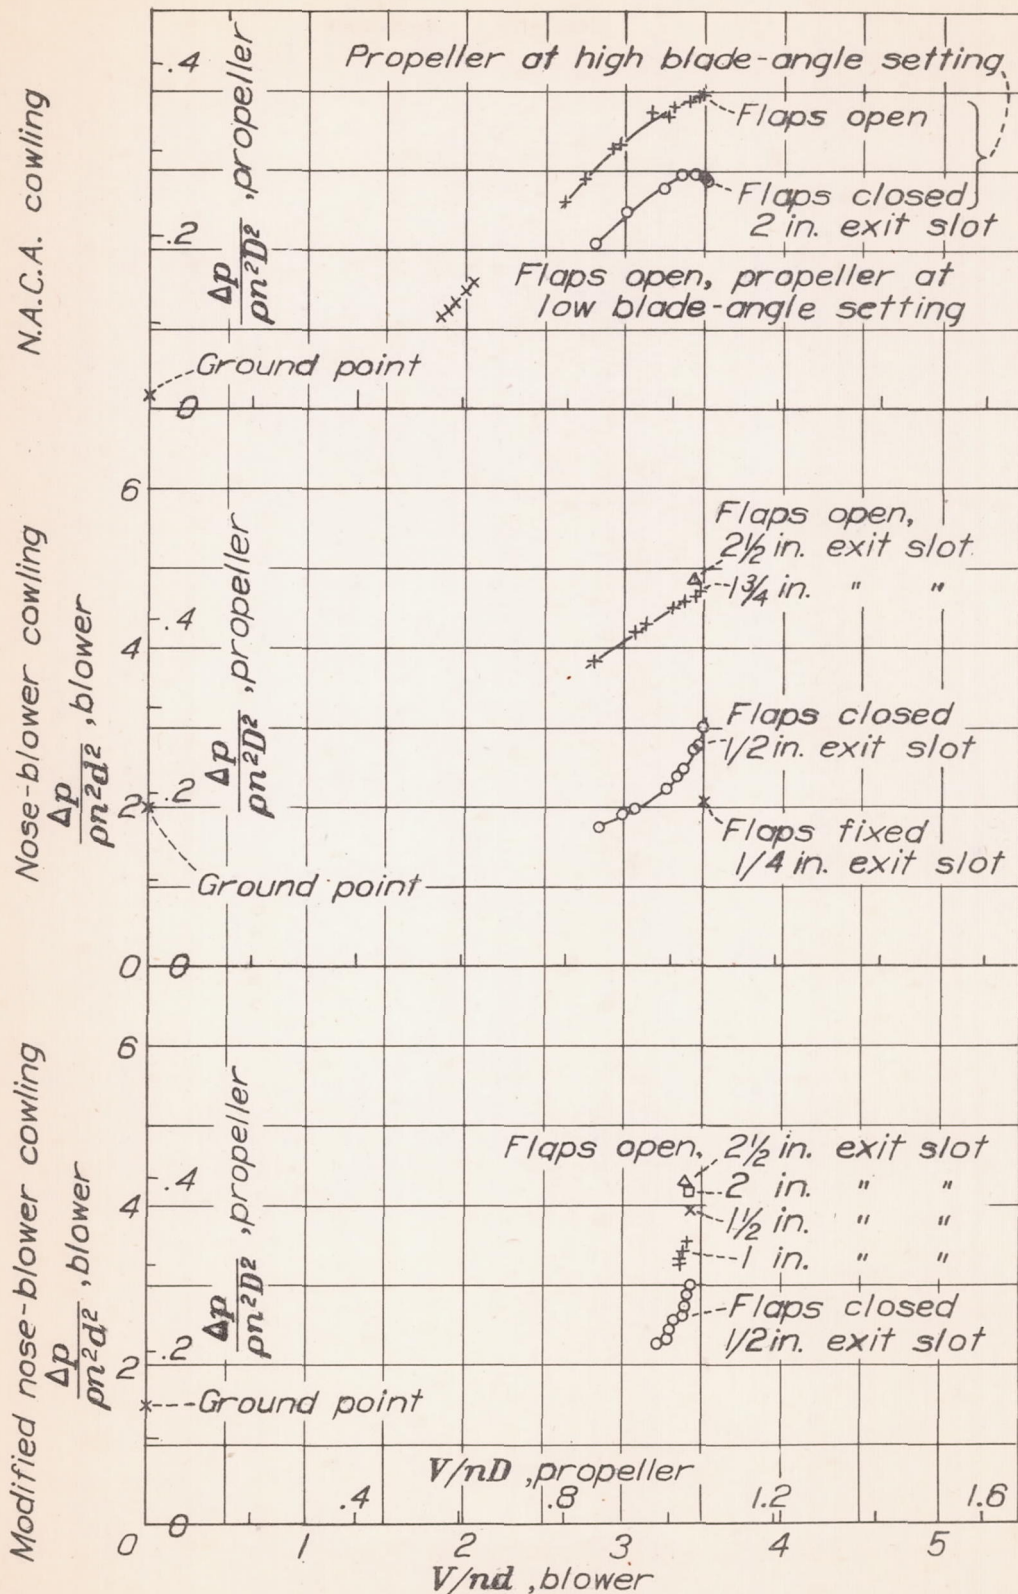 N.A.C.A. cowling
Δp
ρn²D² , propeller
.4
.2
0
Propeller at high blade-angle setting
Flaps open
Flaps closed
2 in. exit slot
Flaps open, propeller at
low blade-angle setting
Ground point
Nose-blower cowling
Δp
ρn²d² , blower
6
4
2
0
Δp
ρn²D² , propeller
.4
.2
0
Flaps open,
2½ in. exit slot
1¾ in. " "
Flaps closed
1/2 in. exit slot
Flaps fixed
1/4 in. exit slot
Ground point
Modified nose-blower cowling
Δp
ρn²d² , blower
6
4
2
0
Δp
ρn²D² , propeller
.4
.2
0
Flaps open, 2½ in. exit slot
2 in. " "
1½ in. " "
1 in. " "
Flaps closed
1/2 in. exit slot
Ground point
V/nD , propeller
.4 .8 1.2 1.6
1 2 3 4 5
V/nd , blower